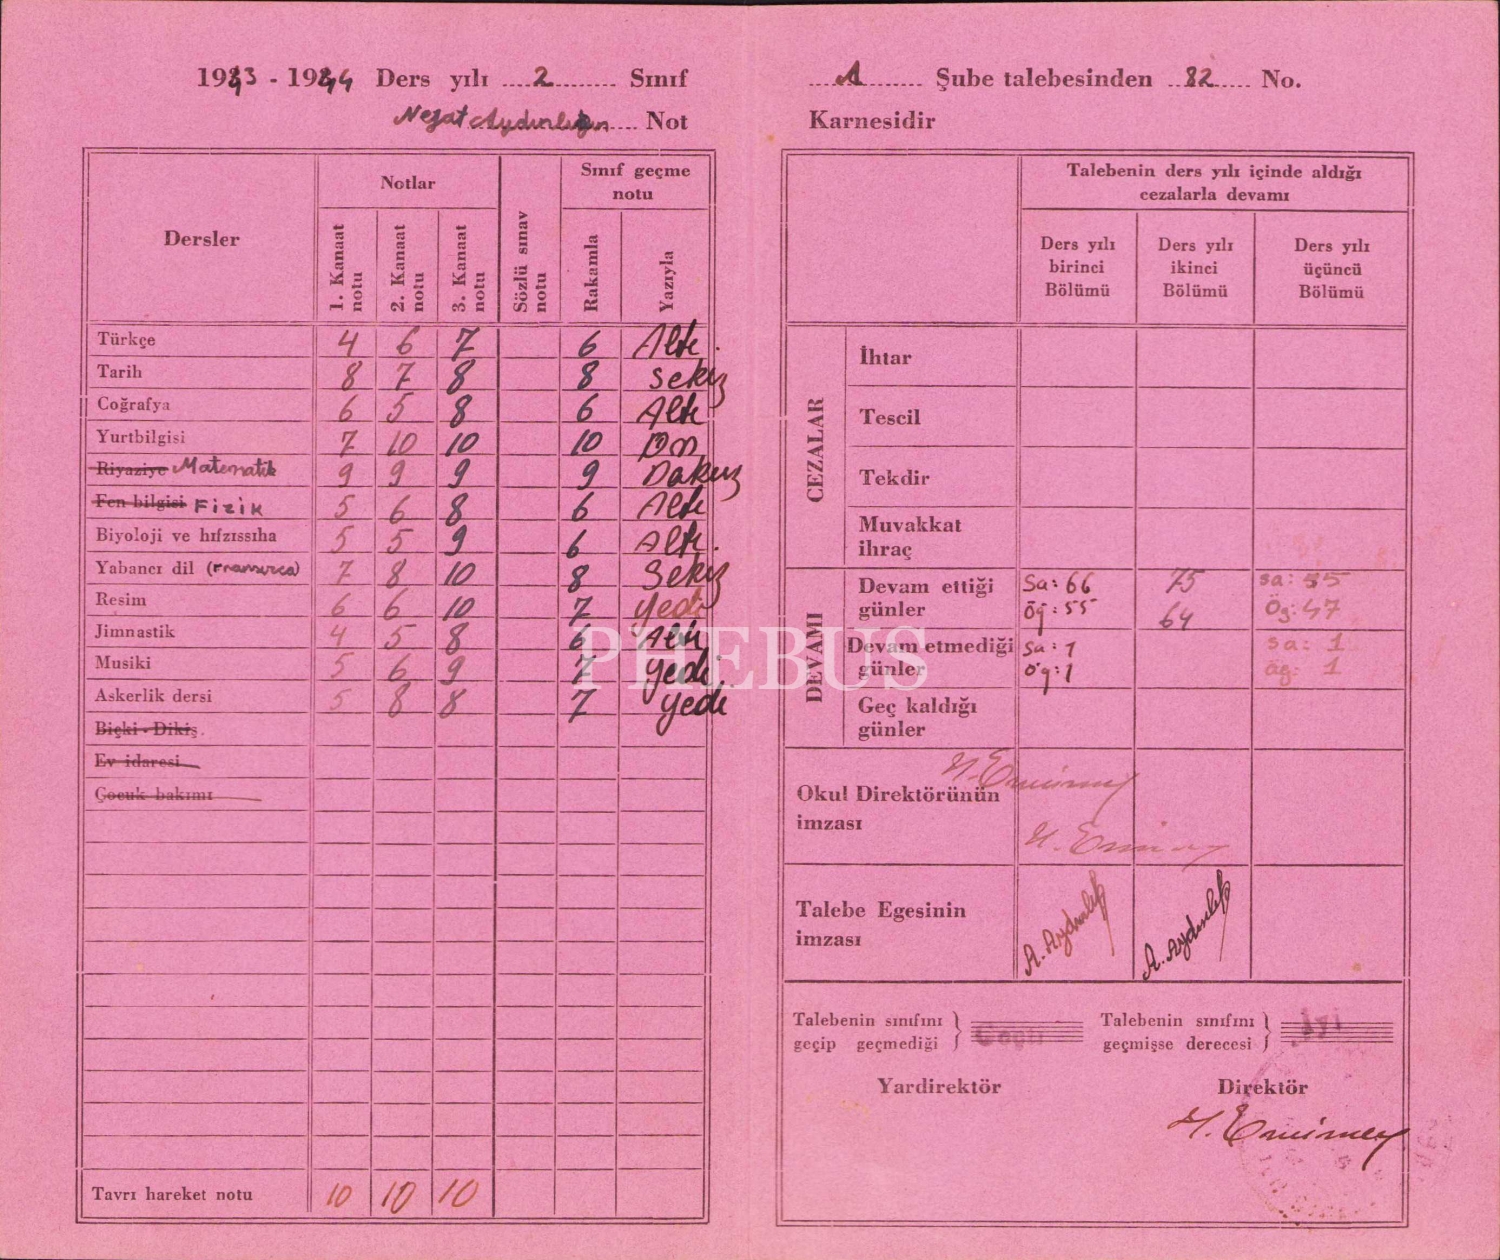 1943 - 1944 Ders yılı 2 Sınıf
Nejat Not
Dersler
Notlar
1. Kanaat notu
2. Kanaat notu
3. Kanaat notu
Sözlü sınav notu
Sınıf geçme notu
Rakamla
Yazıyla
Türkçe 4 6 7 6 Altı.
Tarih 8 7 8 8 sekiz
Coğrafya 6 5 8 6 Altı
Yurtbilgisi 7 10 10 10 On
Riyaziye Matematik 9 9 9 9 Dokuz
Fen bilgisi Fizik 5 6 8 6 Altı
Biyoloji ve hıfzıssıha 5 5 9 6 Altı.
Yabancı dil (Fransızca) 7 8 10 8 Sekiz
Resim 6 6 10 7 yedi
Jimnastik 4 5 8 6 Altı
Musiki 5 6 9 7 yedi.
Askerlik dersi 5 8 8 7 yedi
Biçki - Dikiş.
Ev idaresi
Çocuk bakımı
Tavrı hareket notu 10 10 10
A Şube talebesinden 82 No.
Karnesidir
Talebenin ders yılı içinde aldığı
cezalarla devamı
Ders yılı birinci Bölümü
Ders yılı ikinci Bölümü
Ders yılı üçüncü Bölümü
CEZALAR
İhtar
Tescil
Tekdir
Muvakkat
ihraç
DEVAMI
Devam ettiği Sa: 66 75 sa: 55
günler Öğ: 55 64 Öğ: 47
Devam etmediği Sa: 1 sa: 1
günler öğ: 1 öğ: 1
Geç kaldığı
günler
Okul Direktörünün
imzası
Talebe Egesinin
imzası
Talebenin sınıfını
geçip geçmediği } Geçti
Talebenin sınıfını
geçmişse derecesi } İyi
Yardirektör Direktör
PHEBUS